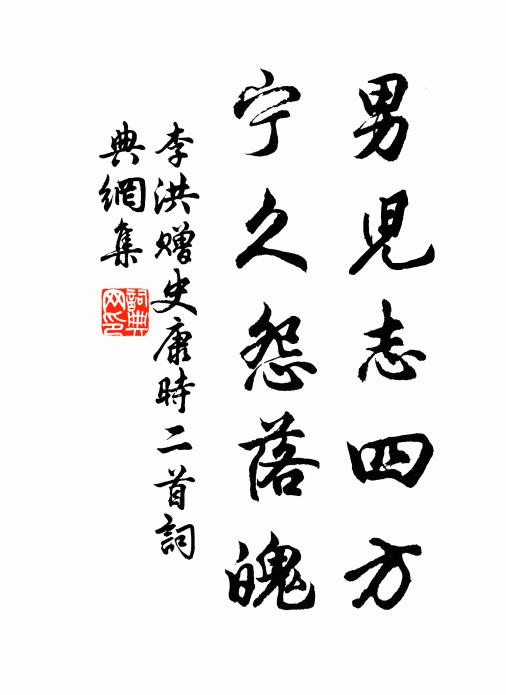 男児志四方
宁久怨落魄
李洪赠史康時二首詞
典網集
詞典
网印